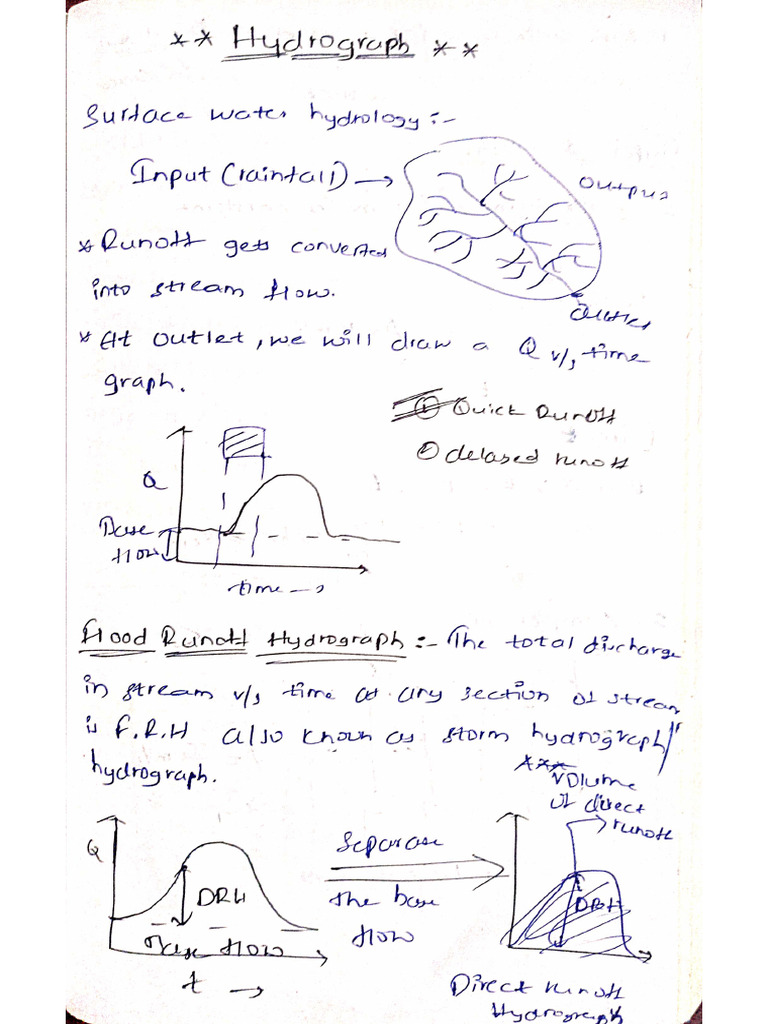 ** Hydrograph **
Surface water hydrology :-
Input (rainfall) →
Output
* Runoff gets converted
into stream flow.
Outlet
* At outlet, we will draw a Q v/s time
graph.
① Quick Runoff
② delayed runoff
Q
Base
flow
time →
Flood Runoff Hydrograph :- The total discharge
in stream v/s time at any section of stream
is F.R.H also known as storm hydrograph/
hydrograph.
***
Volume
of direct
runoff
Q
DRH
Base flow
t →
Separate
the base
flow
DRH
Direct runoff
Hydrograph